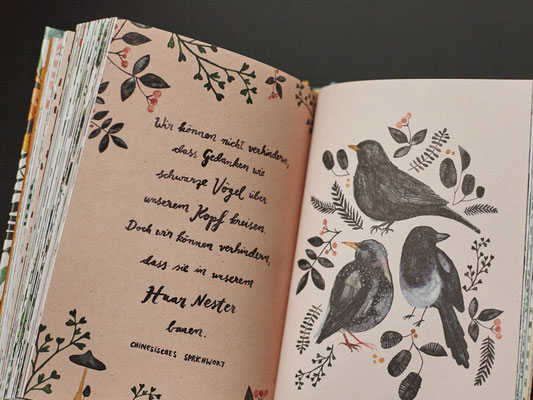 Wir können nicht verhindern,
dass Gedanken wie
schwarze Vögel über
unserem Kopf kreisen.
Doch wir können verhindern,
dass sie in unserem
Haar Nester
bauen.
CHINESISCHES SPRICHWORT